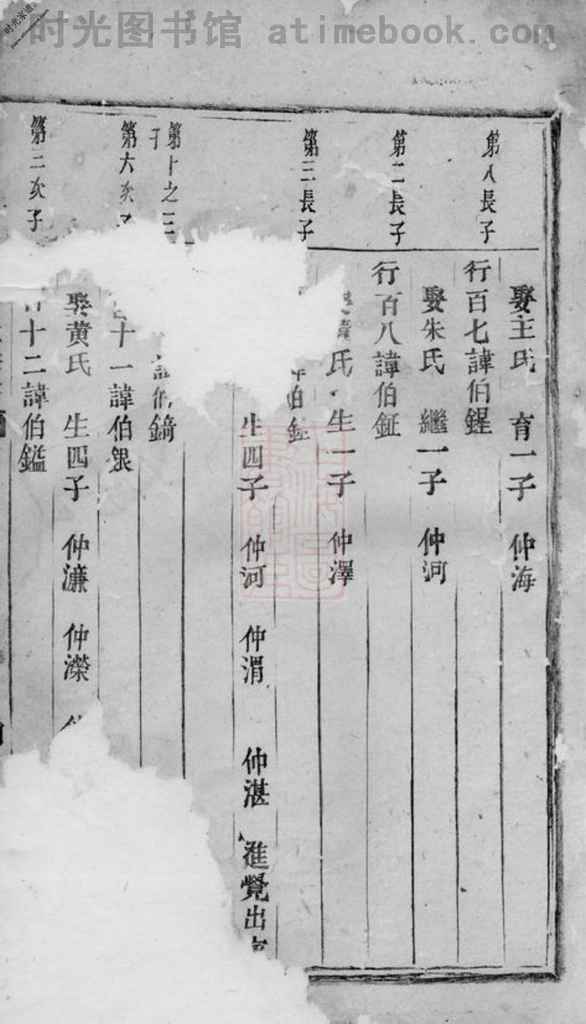 时光图书馆 atimebook.com
第八長子
娶王氏 育一子 仲海
行百七諱伯鍟
第二長子
娶朱氏 繼一子 仲河
行百八諱伯鉦
第三長子
氏 生一子 仲澤
伯
生四子 仲河 仲渭 仲湛 進覺出
第十之三
子
第六次
十一諱伯銀
娶黄氏 生四子 仲濂 仲濚
第二次子
十二諱伯鎰